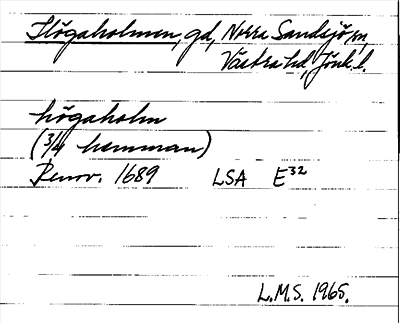 Högaholmen, gd, Norra Sandsjö sn,
Västra hd, Jönk. l.
högaholm
(3/4 hemman)
Renov. 1689 LSA E32
L.M.S. 1965.